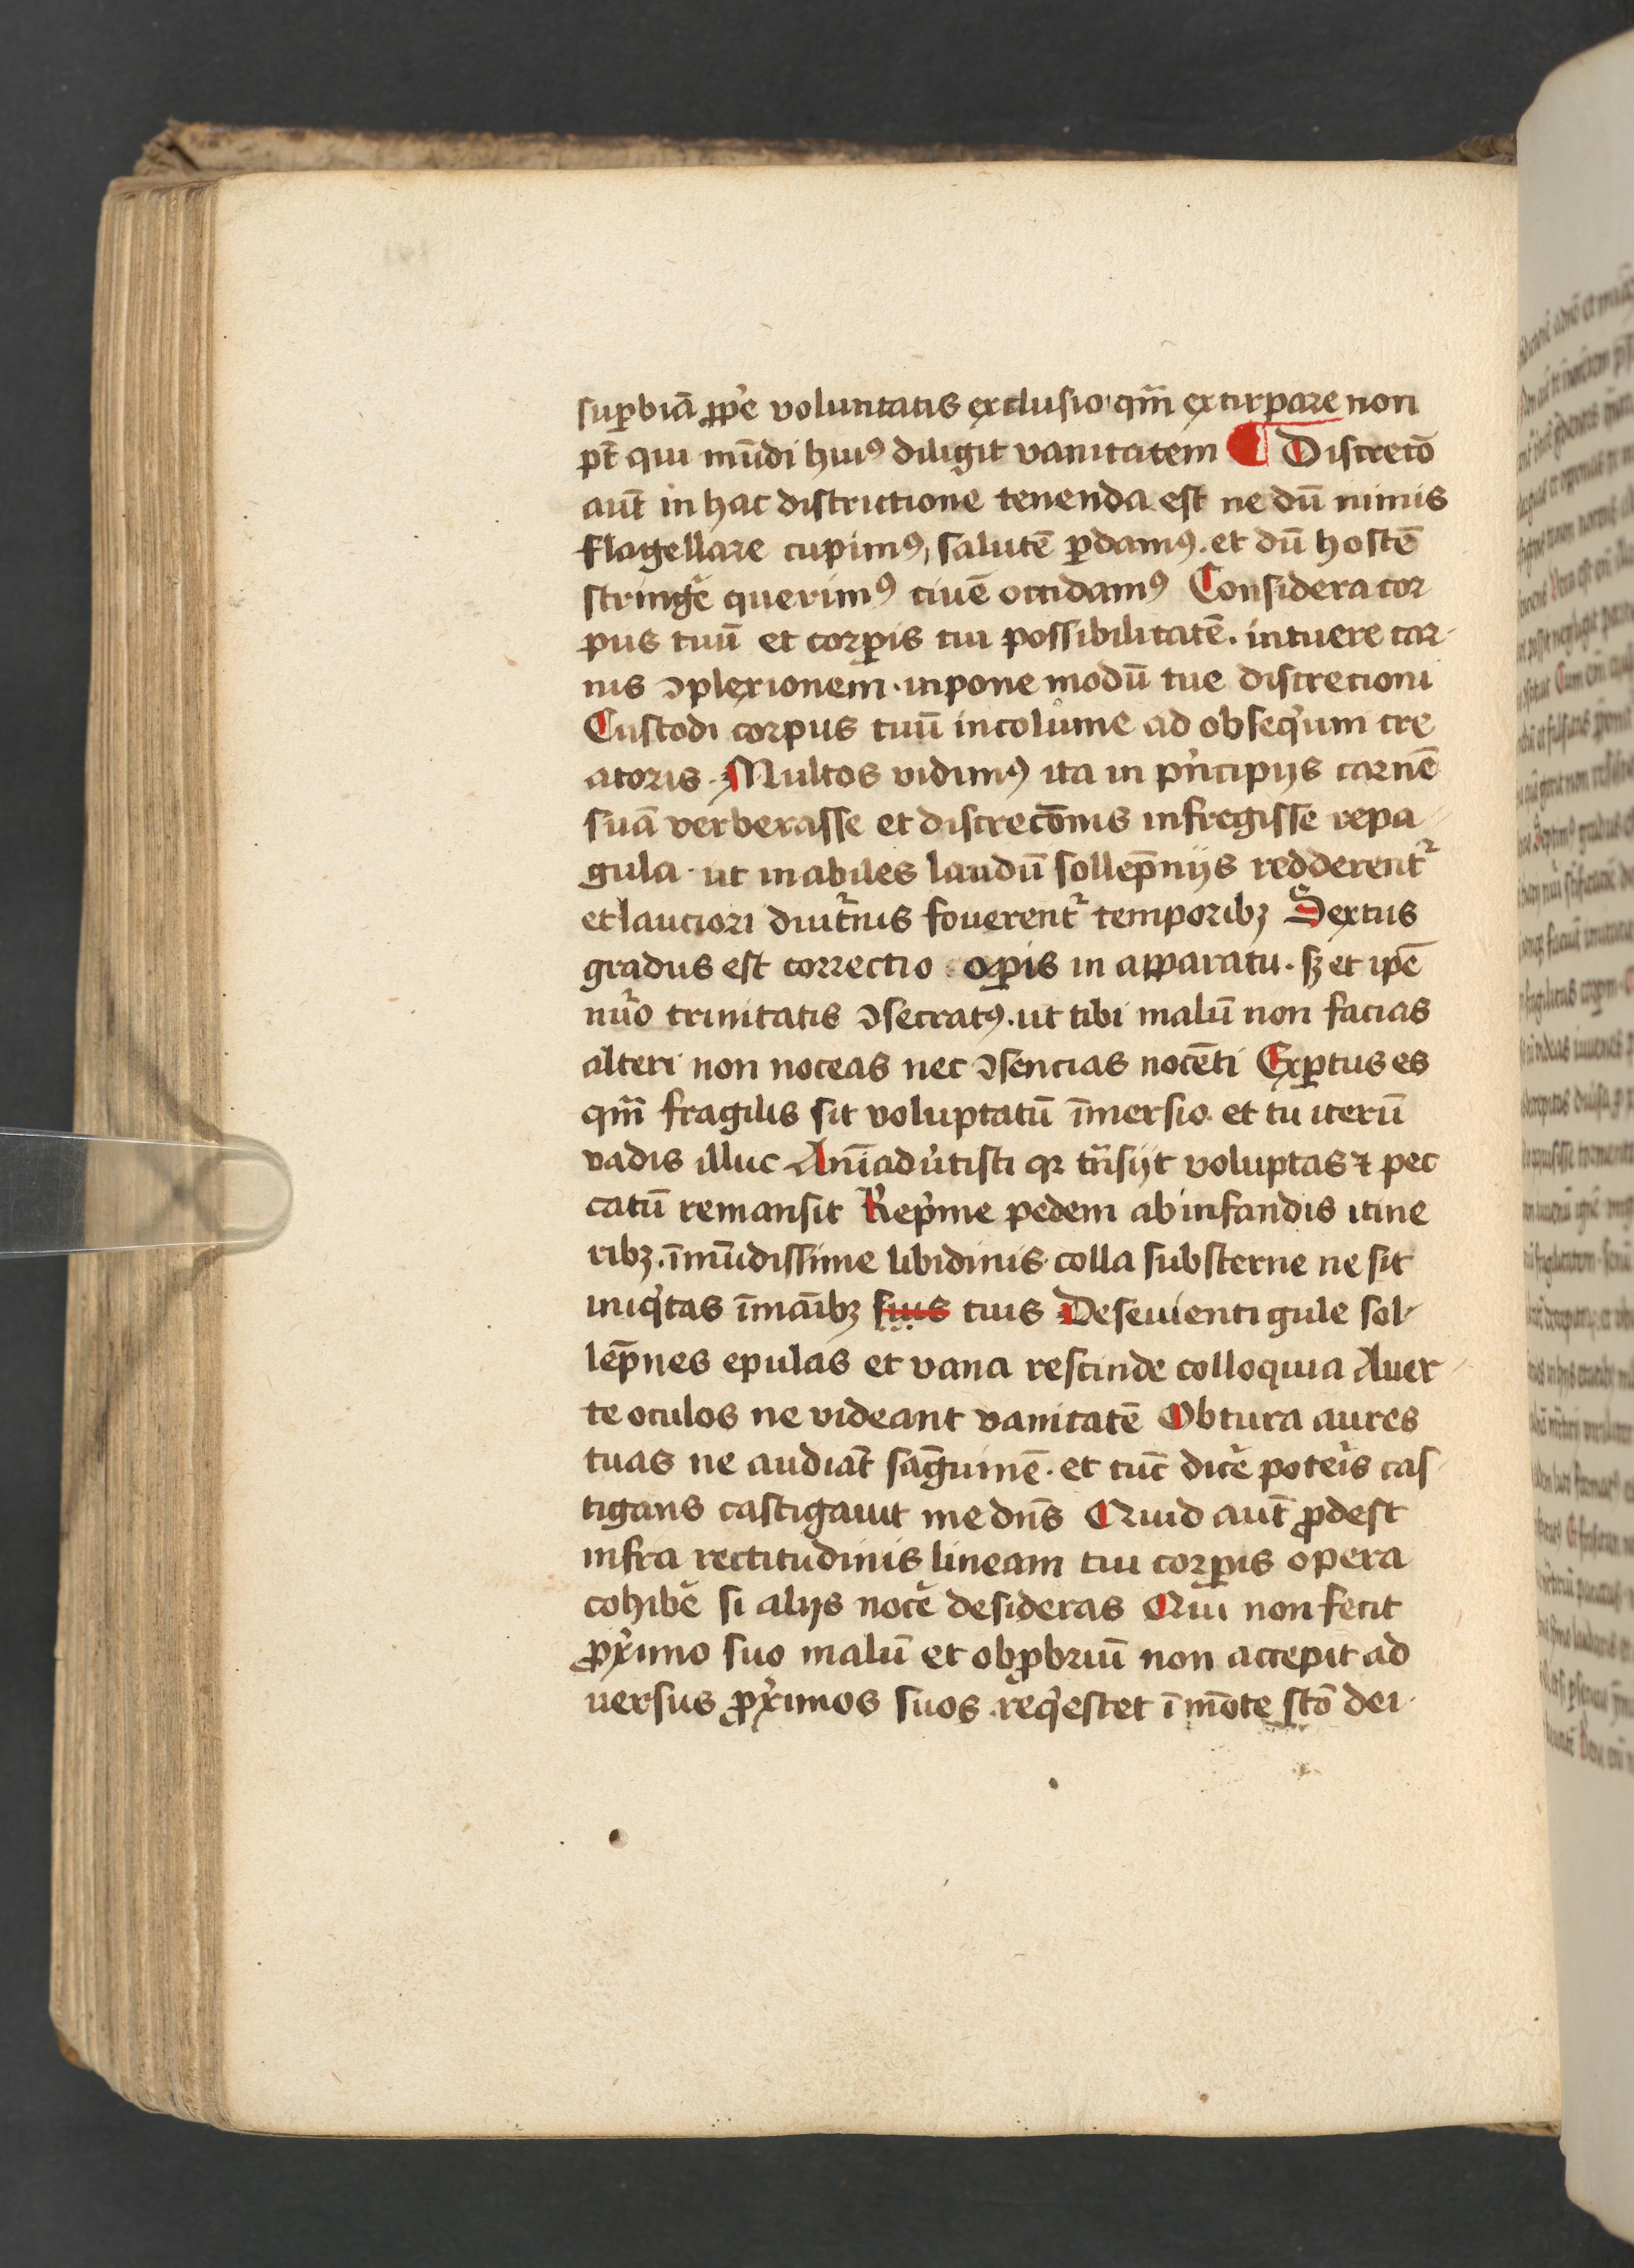 suꝑbiā ꝓp̾e voluntatis exclusio qm̄ extirpare non
pt̄ qui mūdi huiꝰ diligit vanitatem ¶ Discretō
aut̄ in hac districtione tenenda est ne dū nimis
flagellare cupimꝰ, salutē ꝑdamꝰ. et dū hostē
string̾e querimꝰ ciuē occidamꝰ Considera cor
pus tuū et corꝑis tui possibilitatē. intuere car-
nis ꝯplexionem. inpone modū tue discretioni
Custodi corpus tuū incolume ad obseqͥum cre
atoris. Multos vidimꝰ ita in pͥncipijs carnē
suā verberasse et discretōnis infregisse repa-
gula. ut inabiles laudū sollep̄nijs redderentᷣ
et lauciori diut̾nis fouerentᷣ temporibꝫ Sextus
gradus est correctio oꝑis in apparatu. sꝫ et ip̄e
nūo trinitatis ꝯsecratꝰ. ut tibi malū non facias
alteri non noceas nec ꝯsencias nocēti Exꝑtus es
qm̄ fragilis sit voluptatū īmersio. et tu iterū
vadis illuc Anīadu̾tisti qꝛ trͣsijt voluptas ⁊ pec
catū remansit Repͥme pedem ab infandis itine
ribꝫ. īmūdissime libidinis colla substerne ne sit
iniqͥtas ī manibꝫ suis tuis Deseuienti gule sol-
lep̄nes epulas et vana rescinde colloquia Auer-
te oculos ne videant vanitatē Obtura aures
tuas ne audiāt sāguinē. et tūc dic̾e poteris cas-
tigans castigauit me dn̄s Quid aut̄ ꝓdest
infra rectitudinis lineam tui corꝑis opera
cohibe̾ si alijs noce̾ desideras Qui non fecit
ꝓxͥimo suo malū et obꝓbriū non accepit ad
uersus ꝓxͥimos suos. reqͥescet ī mōte scō dei.